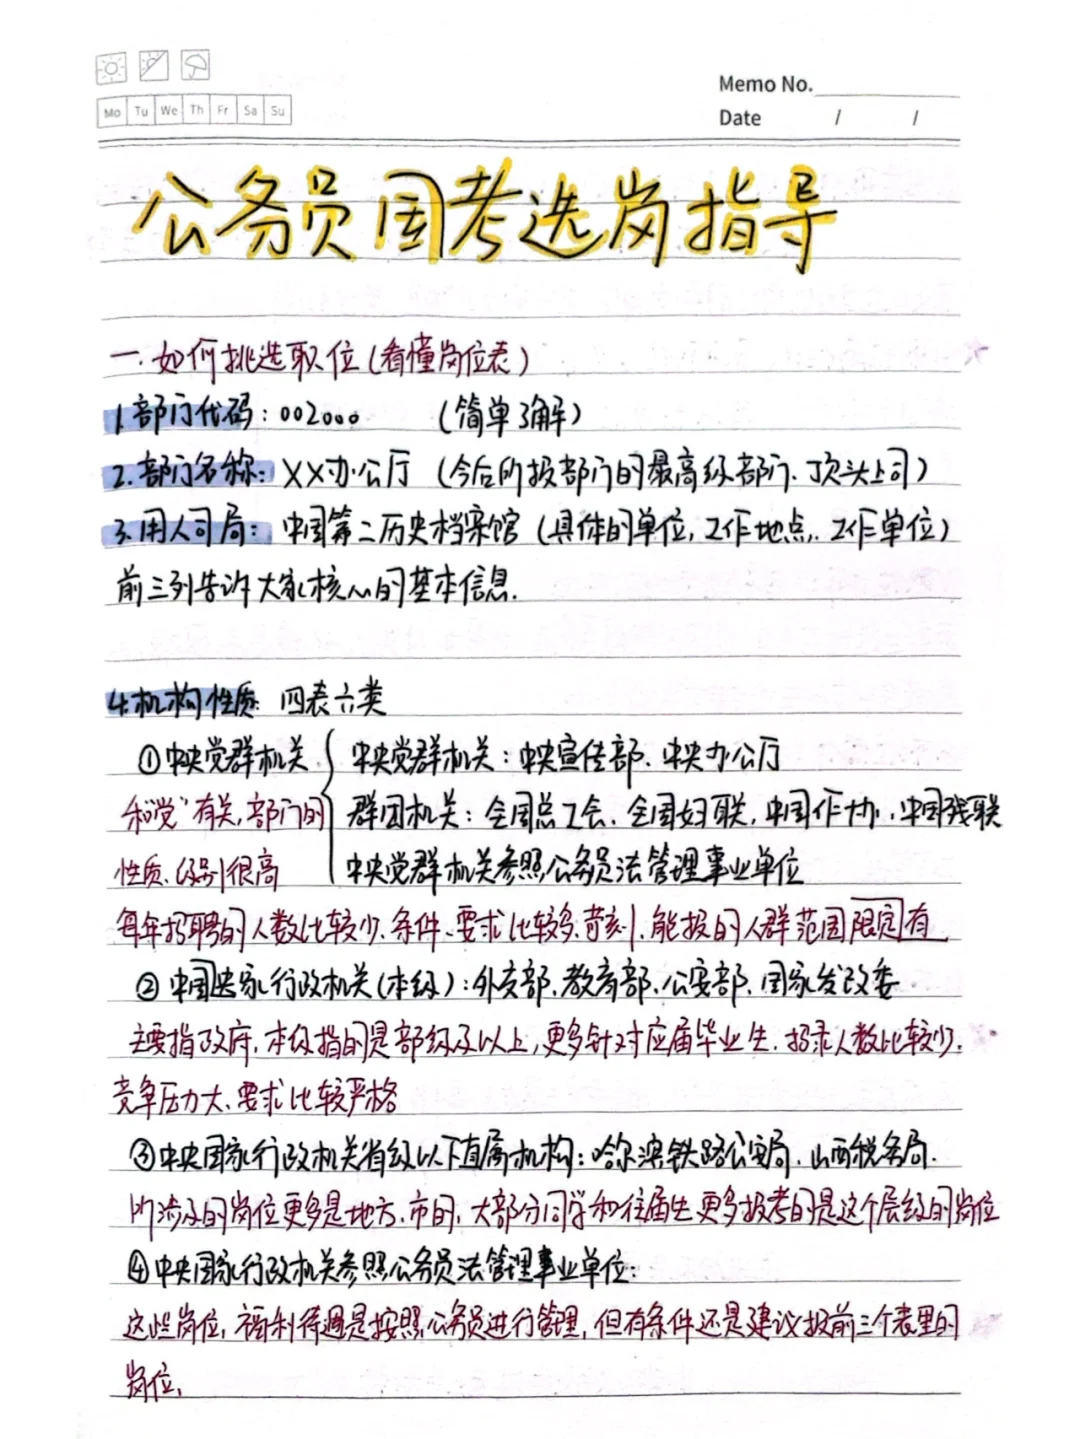 Mo Tu We Th Fr Sa Su
Memo No.
Date / /
公务员国考选岗指导
一.如何挑选职位(看懂岗位表)
1.部门代码:002000 (简单了解)
2.部门名称:XX办公厅 (今后所报部门的最高级部门、顶头上司)
3.用人司局:中国第二历史档案馆 (具体的单位,工作地点、工作单位)
前三列告诉大家核心的基本信息.
4.机构性质:四表六类
①中央党群机关 中央党群机关:中央宣传部、中央办公厅
和“党”有关,部门的 群团机关:全国总工会、全国妇联,中国作协、中国残联
性质、级别很高 中央党群机关参照公务员法管理事业单位
每年招聘的人数比较少、条件、要求比较多、苛刻、能报的人群范围限定有
②中国国家行政机关(本级):外交部、教育部、公安部、国家发改委
主要指政府,本级指的是部级及以上,更多针对应届毕业生.招录人数比较少.
竞争压力大、要求比较严格
③中央国家行政机关省级以下直属机构:哈尔滨铁路公安局、山西税务局.
所涉及的岗位更多是地方、市的,大部分同学和往届生更多报考的是这个层级的岗位
④中央国家行政机关参照公务员法管理事业单位:
这些岗位,福利待遇是按照公务员进行管理,但有条件还是建议报前三个表里的
岗位、